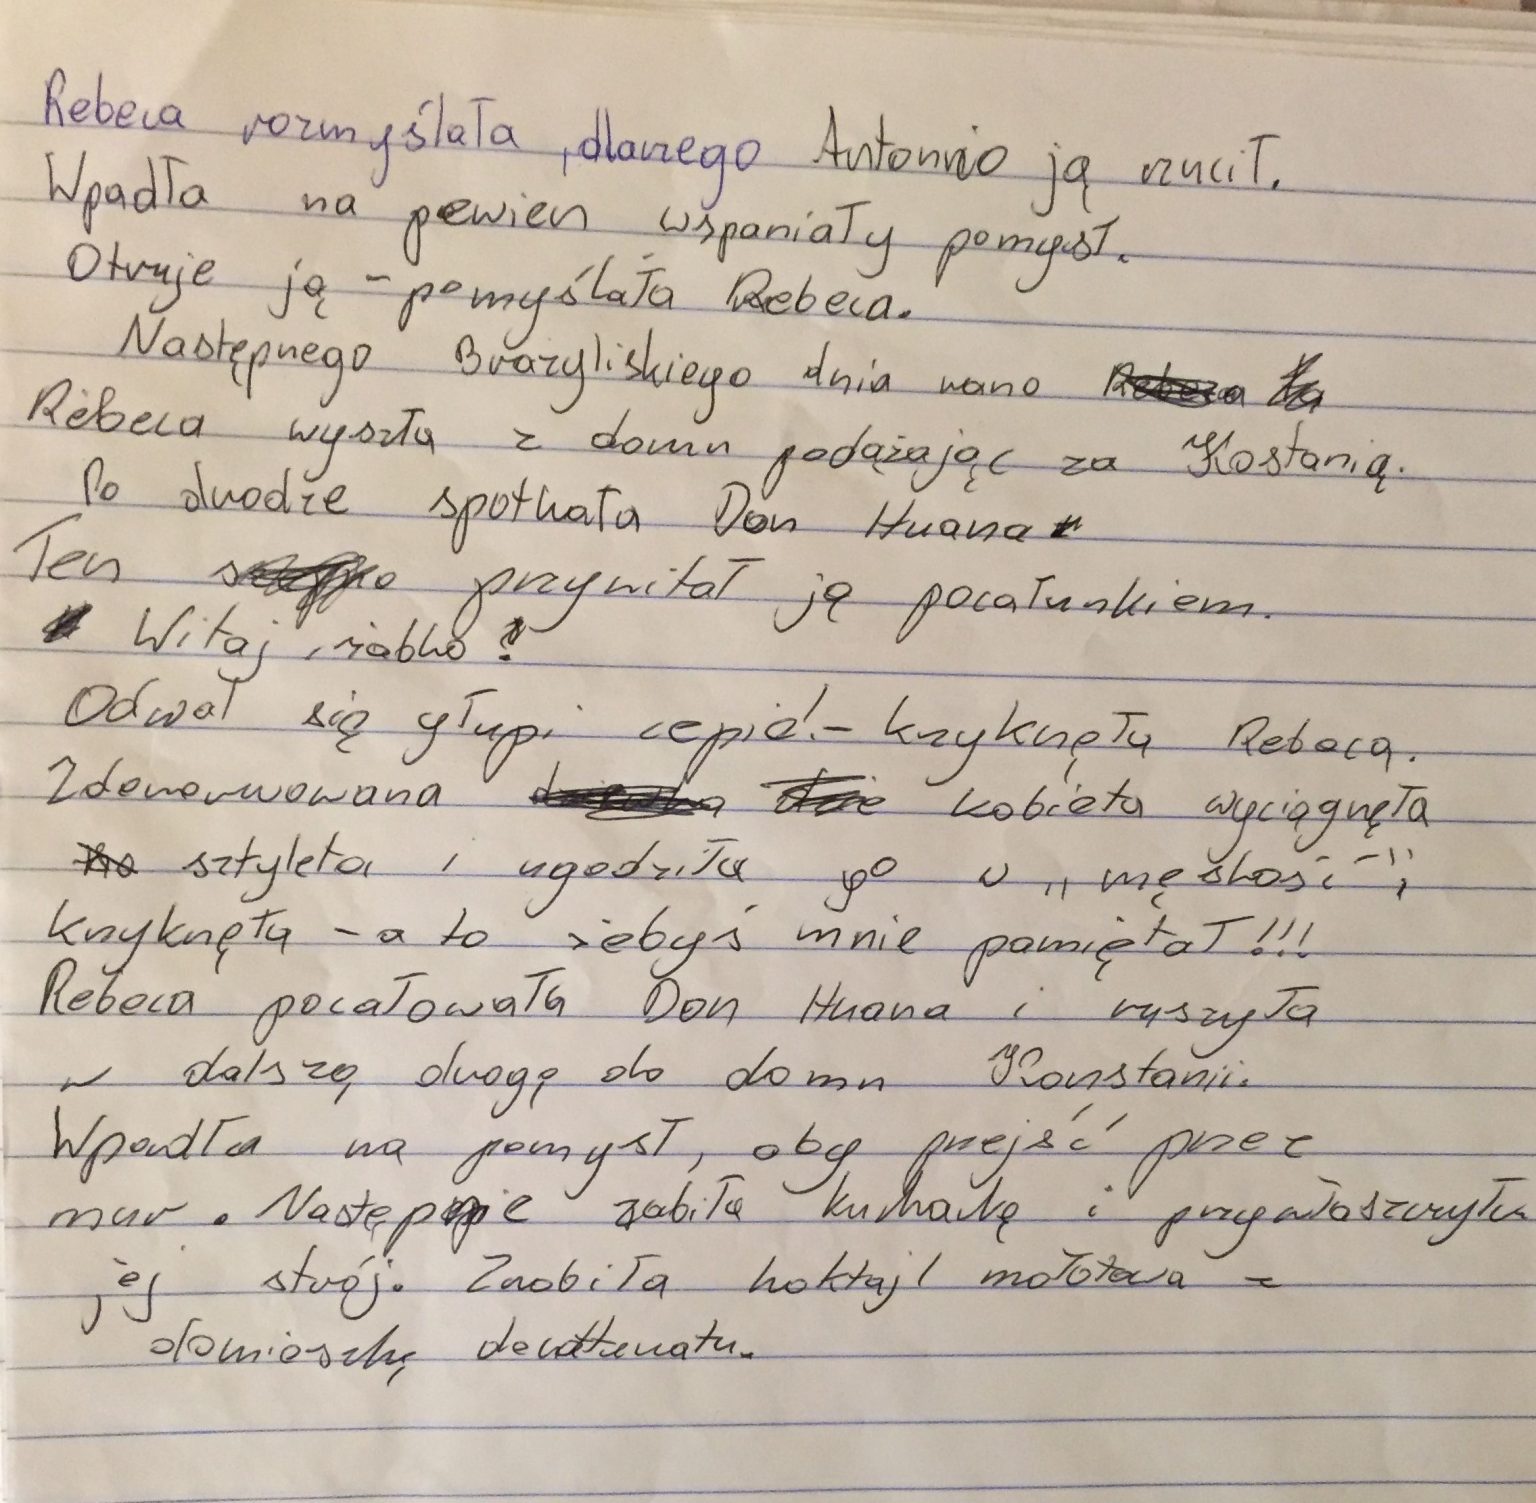 Rebeca rozmyślała ,dlaczego Antonnio ją rzucił.
Wpadła na pewien wspaniały pomysł.
Otruje ją - pomyślała Rebeca.
Następnego Brazyliskiego dnia rano
Rebeca wyszła z domu podążając za Kostanią.
Po drodze spotkała Don Huana
Ten przywitał ją pocałunkiem.
Witaj ,żabko!
Odwal się głupi cepie! - krzyknęła Rebeca.
Zdenerwowana kobieta wyciągnęła
sztyleta i ugodziła go w „męskość"
krzyknęła - a to żebyś mnie pamiętał!!!
Rebeca pocałowała Don Huana i ruszyła
w dalszą drogę do domu Konstanii.
Wpadła na pomysł, aby przejść przez
mur. Następnie zabiła kucharkę i przywłaszczyła
jej strój. Zrobiła koktajl mołotowa z
domieszką denaturatu.